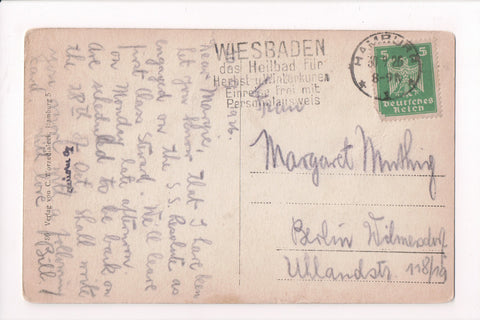 WIESBADEN
das Heilbad für
Herbst u. Winterkuren
Einreise frei mit
Personalausweis
HAMBURG
8-9
5 5
Deutsches
Reich
Frau
Margaret Muthig
Berlin Wilmersdorf
Uhlandstr. 118/19
Dear Margie, that I have been
let you know
engaged on the S.S. Resolute as
first class Steward. We'll leave
on Monday late afternoon.
are scheduled to be back on
the 28th of Oct. Shall write
love
Bill
Verlag von C. Hamburg 5